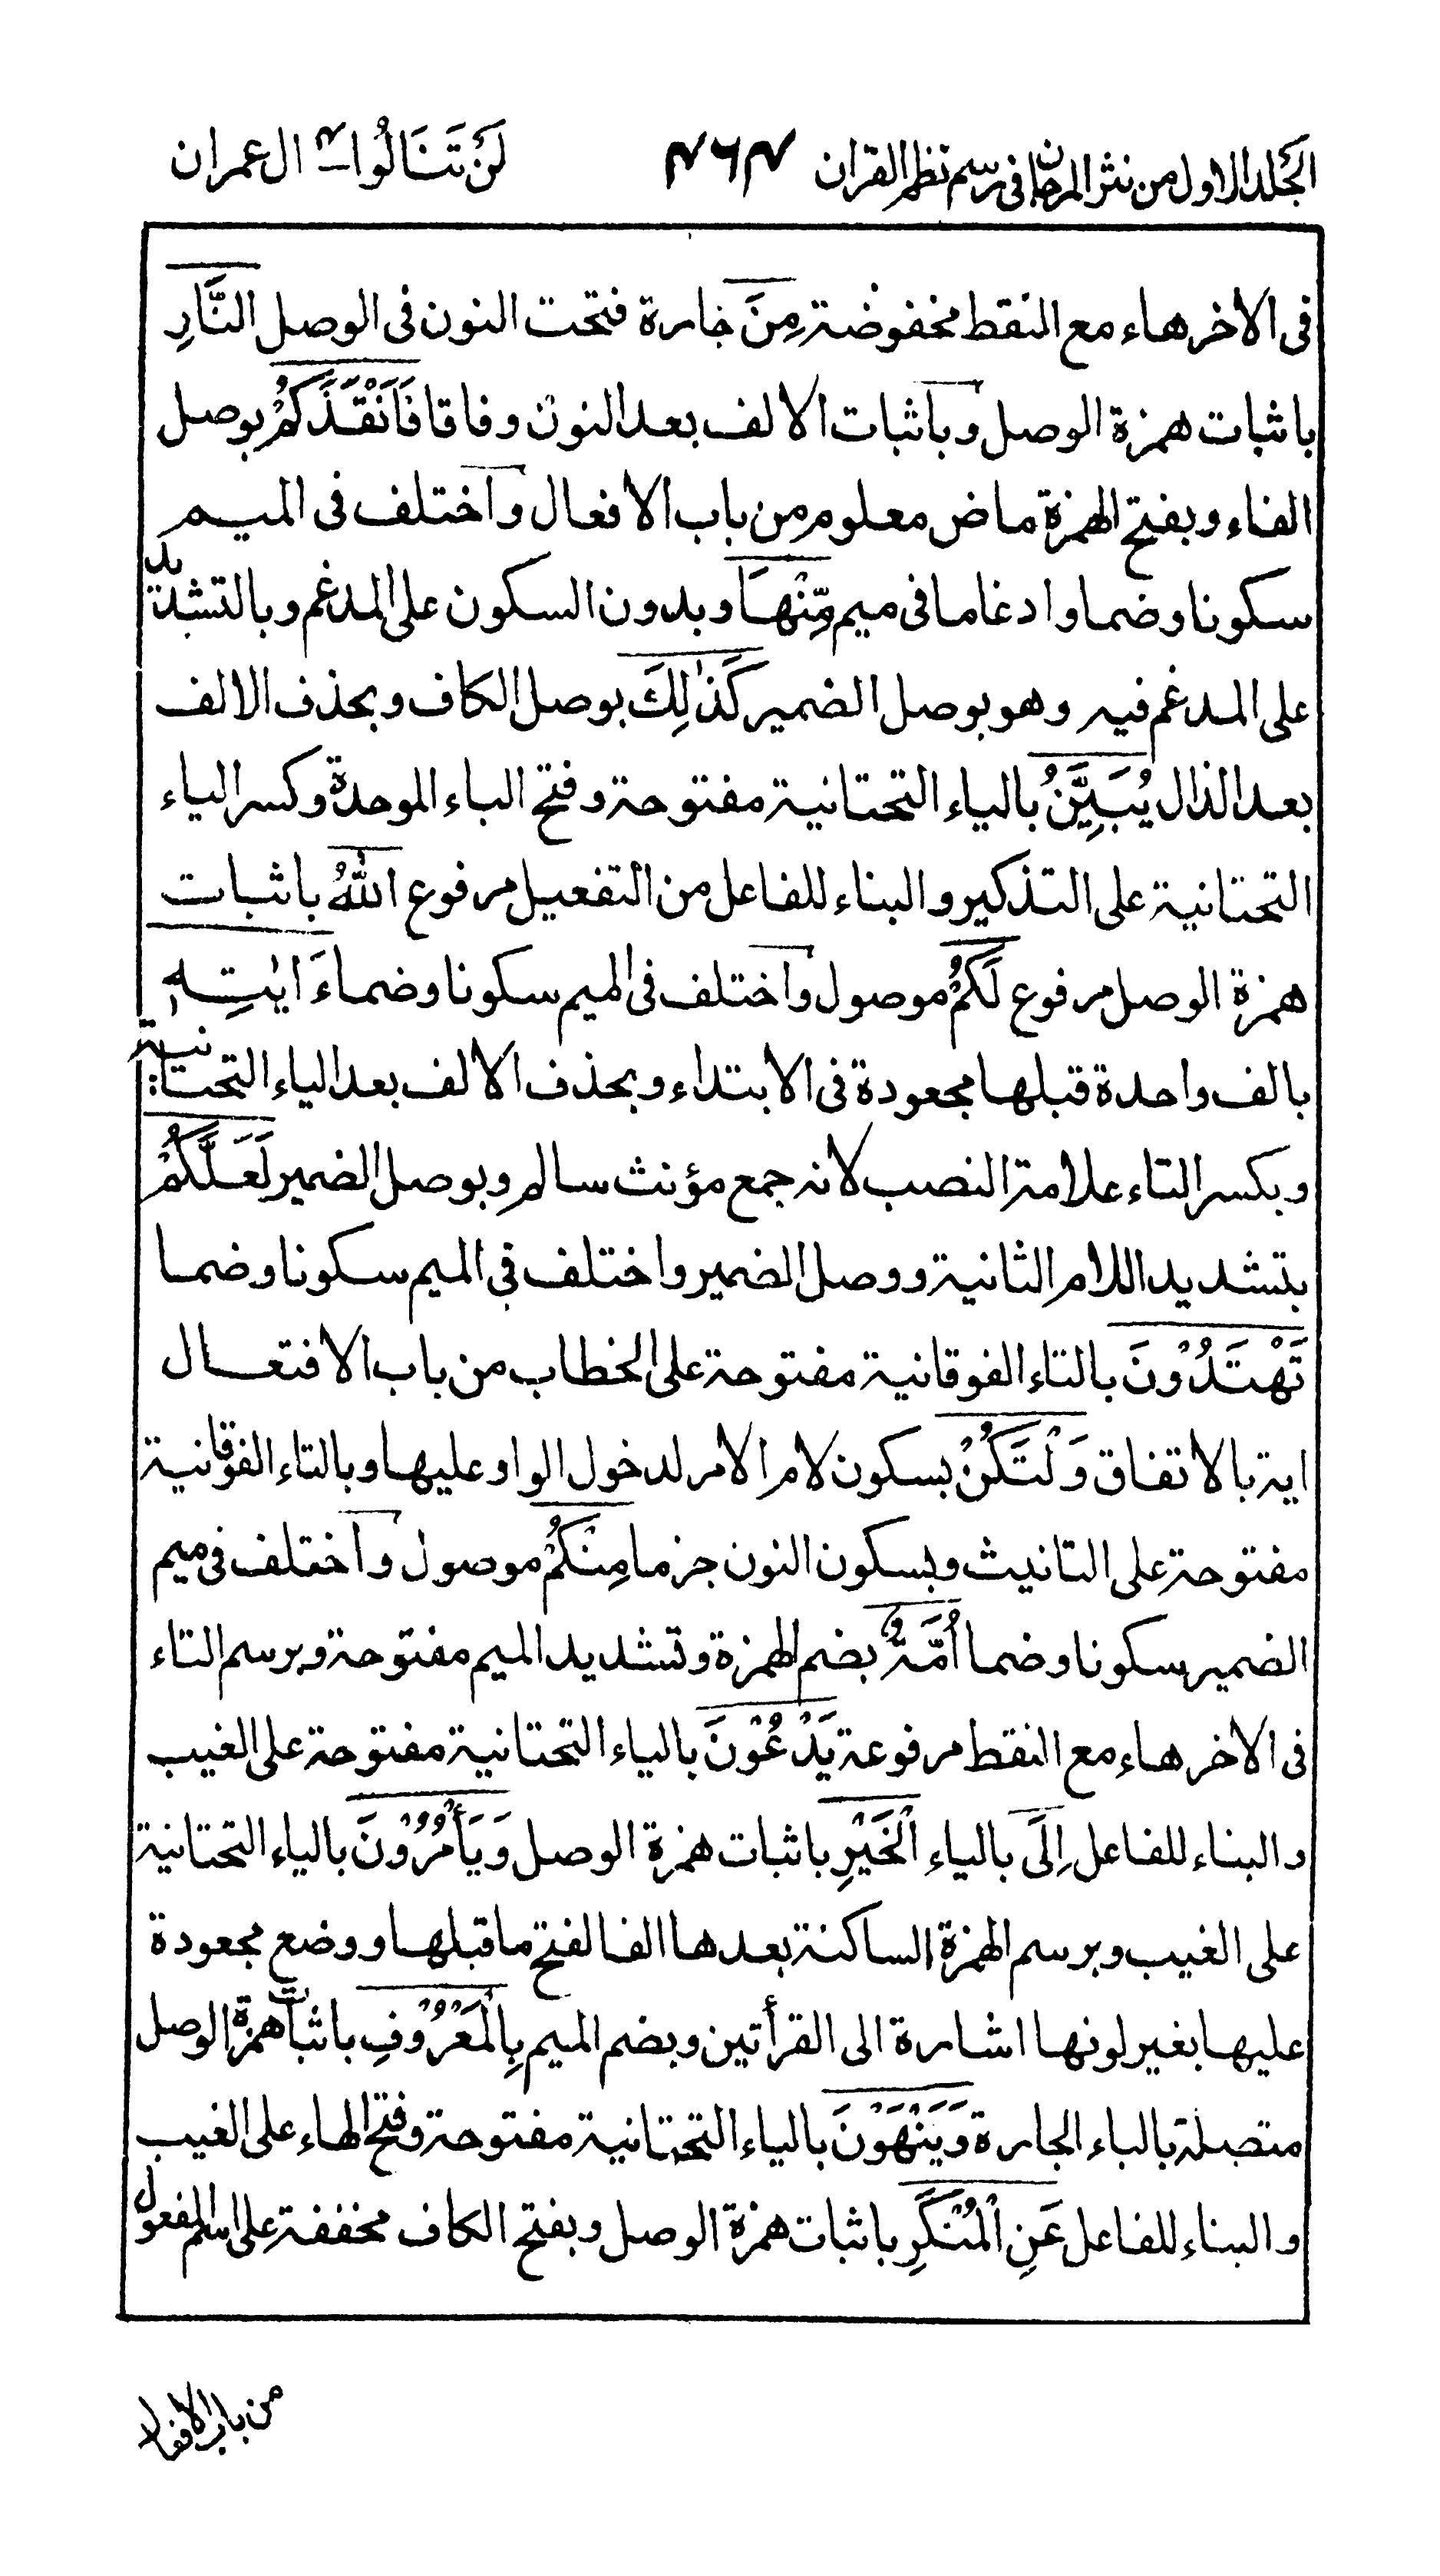 الجلد الاول من نثر المرجان فی رسم نظم القران ۴۶۴ لَنْ تَنَالُوا۴ ال عمران
فی الاخر هاء مع النقط مخفوضة مِنَ جارة فتحت النون فی الوصل النَّارِ
باثبات همزة الوصل وباثبات الالف بعد النون وفاقا فَاَنْقَذَكُمْ بوصل
الفاء وبفتح الهمزة ماض معلوم من باب الافعال واختلف فی الميم
سكونا وضما وادغاما فی ميم مِّنْهَا وبدون السكون على المدغم وبالتشديد
على المدغم فيه وهو بوصل الضمير كَذٰلِكَ بوصل الكاف وبحذف الالف
بعد الذال يُبَيِّنُ بالياء التحتانية مفتوحة وفتح الباء الموحدة وكسر الياء
التحتانية على التذكير والبناء للفاعل من التفعيل مرفوع اللّٰهُ باثبات
همزة الوصل مرفوع لَكُمْ موصول واختلف فی الميم سكونا وضما ءَايٰتِهٖ
بالف واحدة قبلها مجعودة فی الابتداء وبحذف الالف بعد الياء التحتانية
وبكسر التاء علامة النصب لانه جمع مؤنث سالم وبوصل الضمير لَعَلَّكُمْ
بتشديد اللام الثانية ووصل الضمير واختلف فی الميم سكونا وضما
تَهْتَدُوْنَ بالتاء الفوقانية مفتوحة على الخطاب من باب الافتعال
اية بالاتفاق وَلْتَكُنْ بسكون لام الامر لدخول الواو عليها وبالتاء الفوقانية
مفتوحة على التانيث وبسكون النون جزما مِنْكُمْ موصول واختلف فی ميم
الضمير سكونا وضما اُمَّةٌ بضم الهمزة وتشديد الميم مفتوحة وبرسم التاء
فی الاخر هاء مع النقط مرفوعة يَدْعُوْنَ بالياء التحتانية مفتوحة على الغيب
والبناء للفاعل اِلَى بالياء الْخَيْرِ باثبات همزة الوصل وَيَأْمُرُوْنَ بالياء التحتانية
على الغيب وبرسم الهمزة الساكنة بعدها الفا لفتح ما قبلها ووضع مجعودة
عليها بغير لونها اشارة الى القرأتين وبضم الميم بِالْمَعْرُوْفِ باثبات همزة الوصل
متصلة بالباء الجارة وَيَنْهَوْنَ بالياء التحتانية مفتوحة وفتح الهاء على الغيب
والبناء للفاعل عَنِ الْمُنْكَرِ باثبات همزة الوصل وبفتح الكاف مخففة على اسم المفعول
من باب الافعال